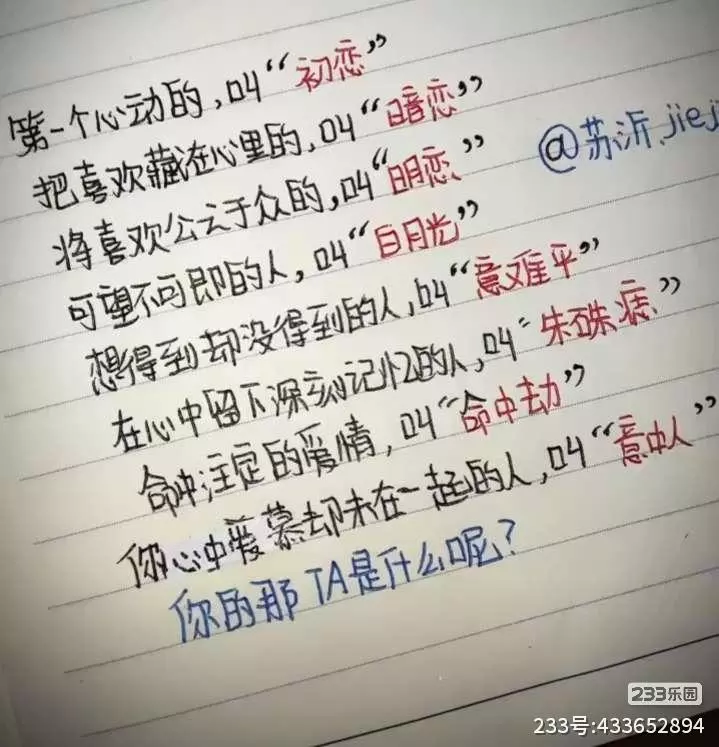 第一个心动的，叫“初恋”
把喜欢藏在心里的，叫“暗恋”
@苏沂.jieji
将喜欢公云于众的，叫“明恋”
可望不可即的人，叫“白月光”
想得到却没得到的人，叫“意难平”
在心中留下深刻记忆的人，叫“朱硃痣”
命中注定的爱情，叫“命中劫”
你心中爱慕却未在一起的人，叫“意中人”
你的那TA是什么呢？
233乐园
233号:433652894